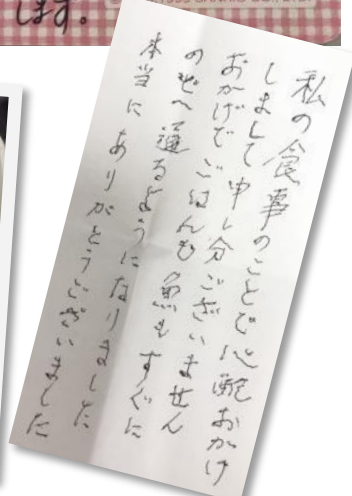 します。
私の食事のことで心配おかけ
しまして申し分ございません
おかげでごはんも魚もすぐに
のどへ通るようになりました
本当にありがとうございました